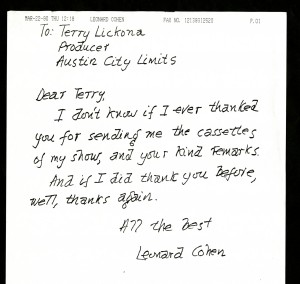 MAR-02-90 THU 12:18 LEONARD COHEN FAX NO. 12139312520 P.01
To: Terry Lickona
Producer
Austin City Limits
Dear Terry,
I don't know if I ever thanked
you for sending me the cassettes
of my show, and your kind remarks.
And if I did thank you before,
well, thanks again.
All the best
Leonard Cohen